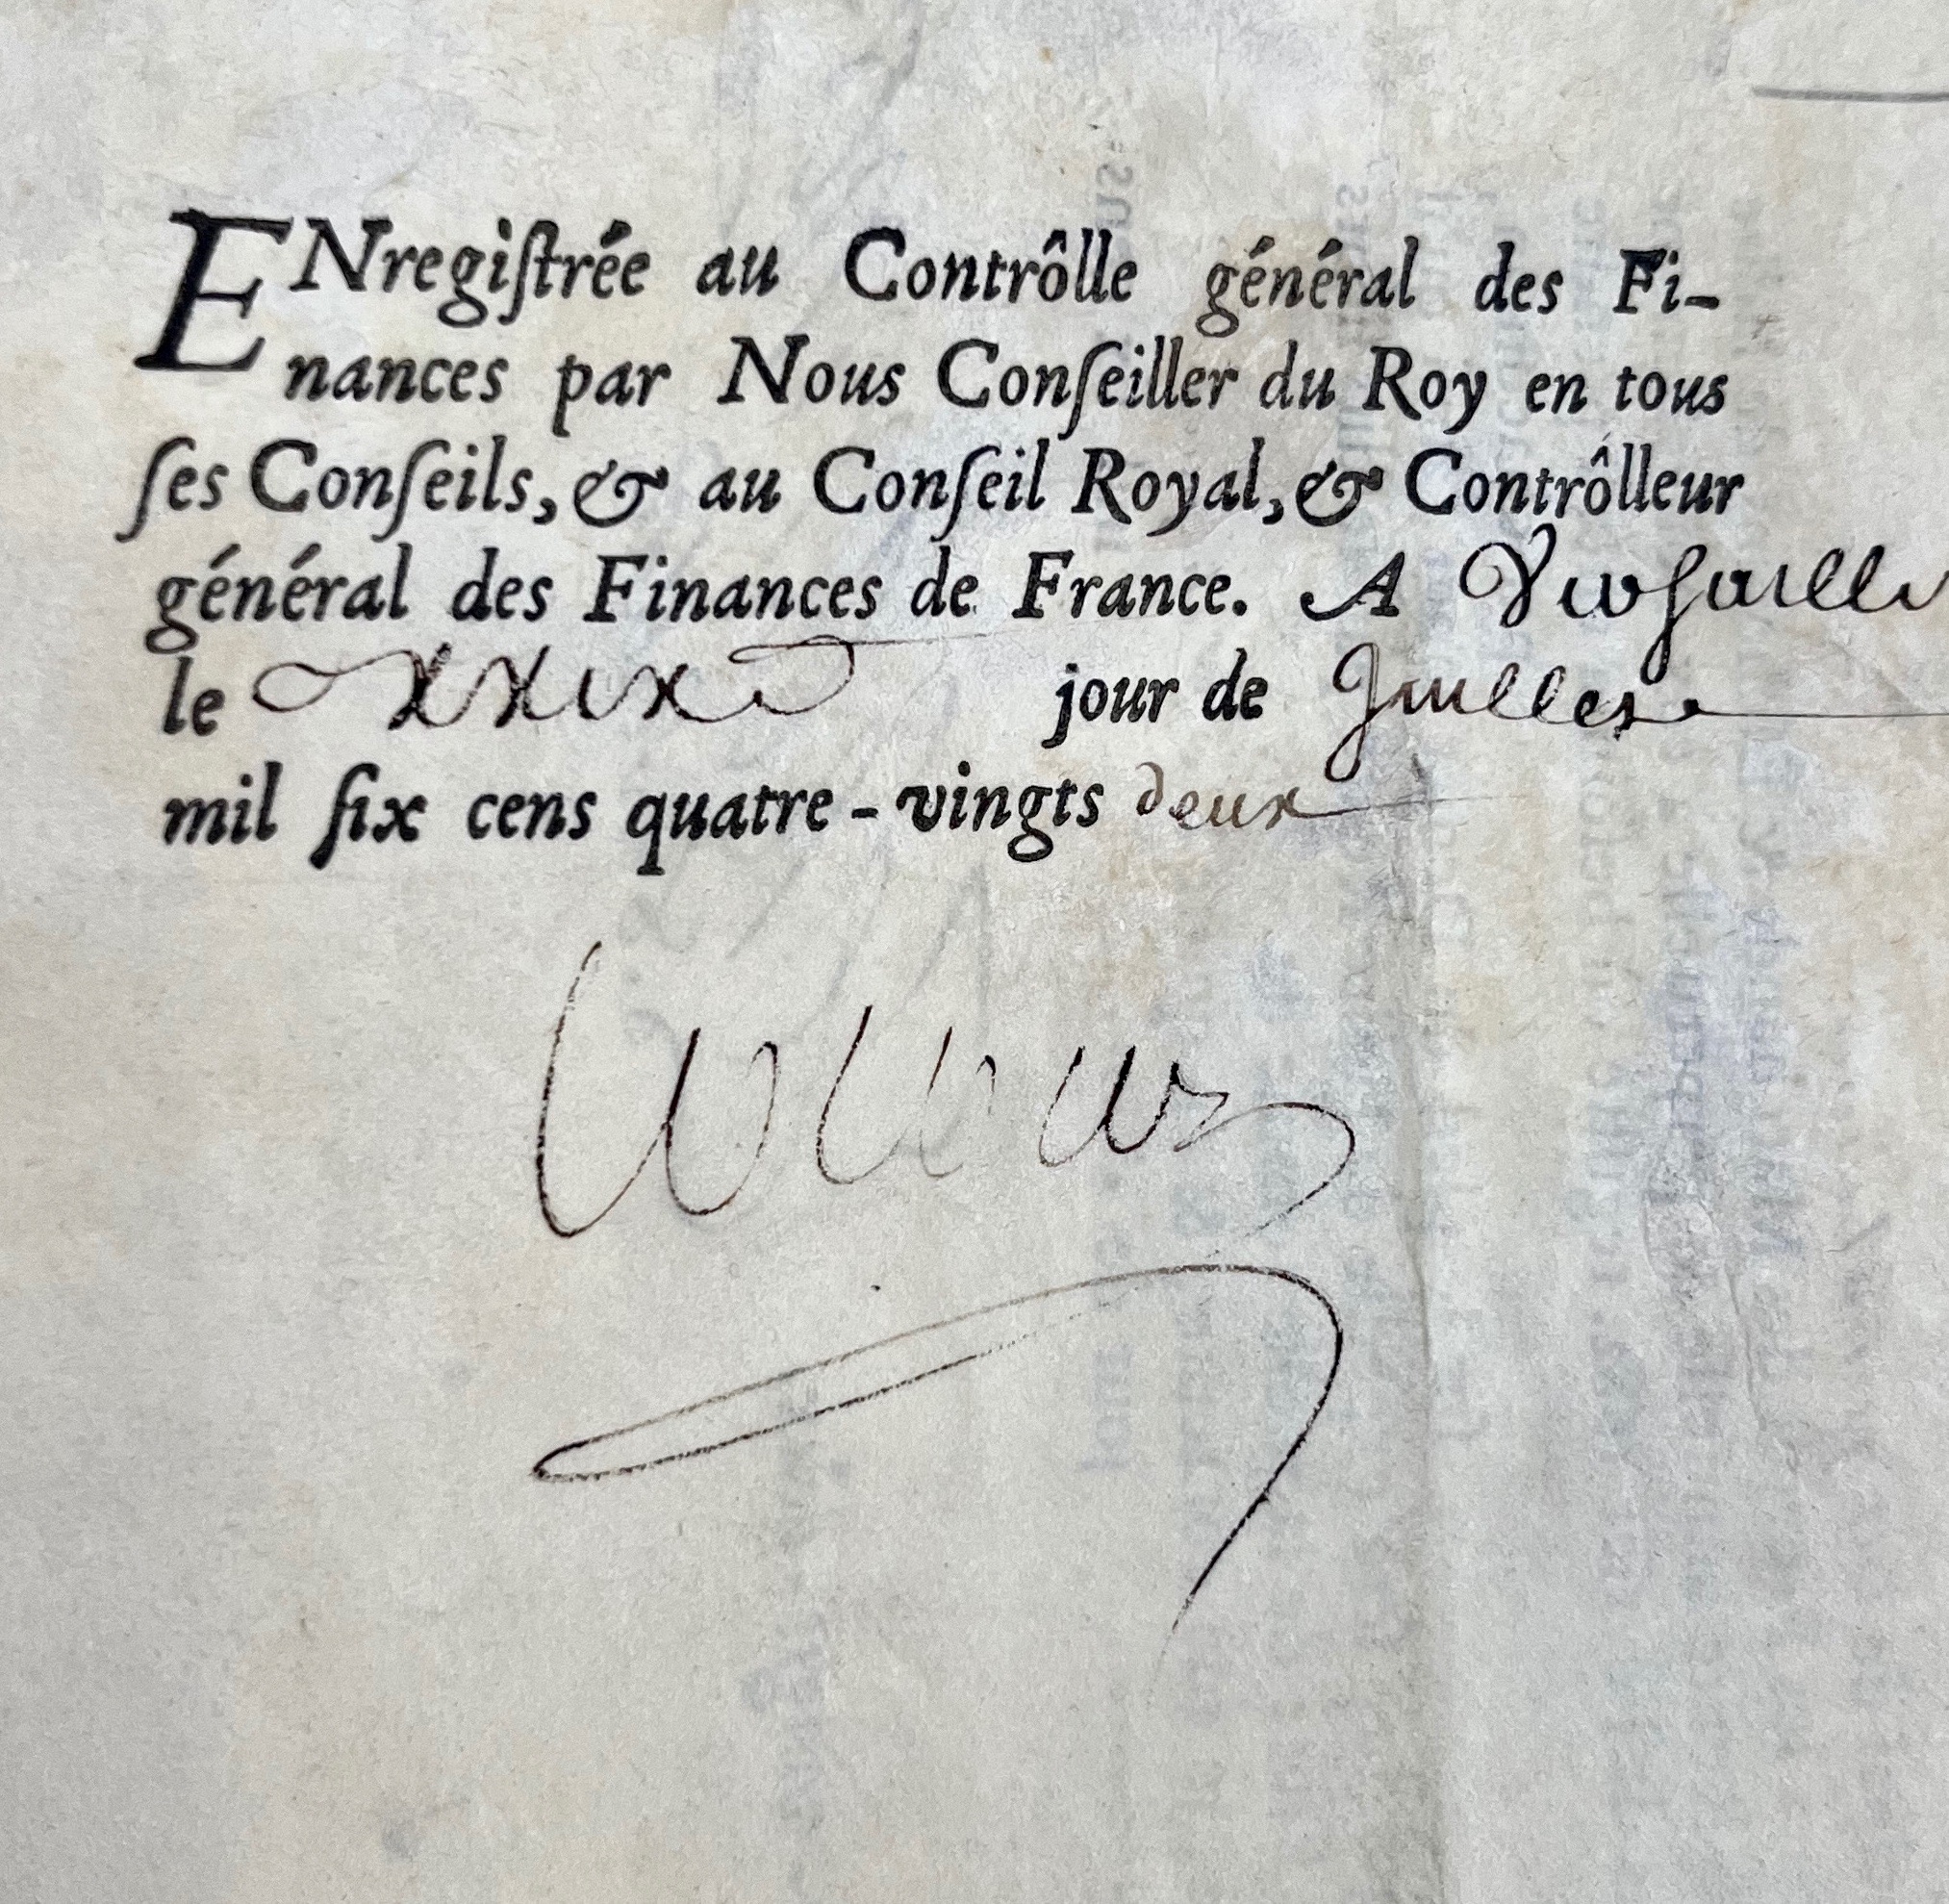 ENregiſtrée au Contrôlle général des Fi-
nances par Nous Conſeiller du Roy en tous
ſes Conſeils, & au Conſeil Royal, & Contrôlleur
général des Finances de France. A Verſaille
le xxix jour de Juillet
mil ſix cens quatre-vingts deux